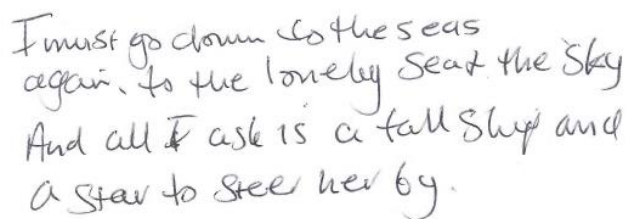 I must go down to the seas
again, to the lonely sea & the sky
And all I ask is a tall ship and
a star to steer her by.